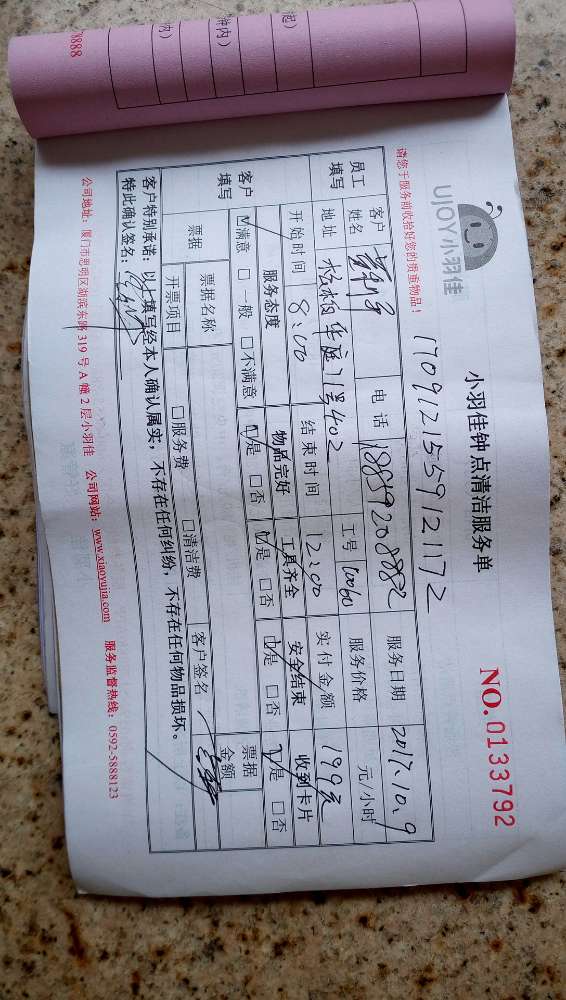 小羽佳钟点清洁服务单
UJOY小羽佳
NO. 0133792
1709121559121172
请您于服务前收拾好您的贵重物品！
员工填写
客户姓名
电话 18859208882
服务日期 2017.10.9
地址 松柏华庭71号402
工号 10060
服务价格 元/小时
开始时间 8:00
结束时间 12:00
实付金额 199元
客户填写
服务态度 物品完好 工具齐全 安全结束 收到卡片
☑满意 □一般 □不满意 ☑是 □否 ☑是 □否 ☑是 □否 ☑是 □否
票据
票据名称
票据金额
开票项目 □服务费 □清洁费 客户签名
客户特别承诺：以上填写经本人确认属实，不存在任何纠纷，不存在任何物品损坏。
特此确认签名：
公司地址：厦门市思明区湖滨东路319号A幢2层小羽佳 公司网站：www.xiaoyujia.com 服务监督热线：0592-5888123